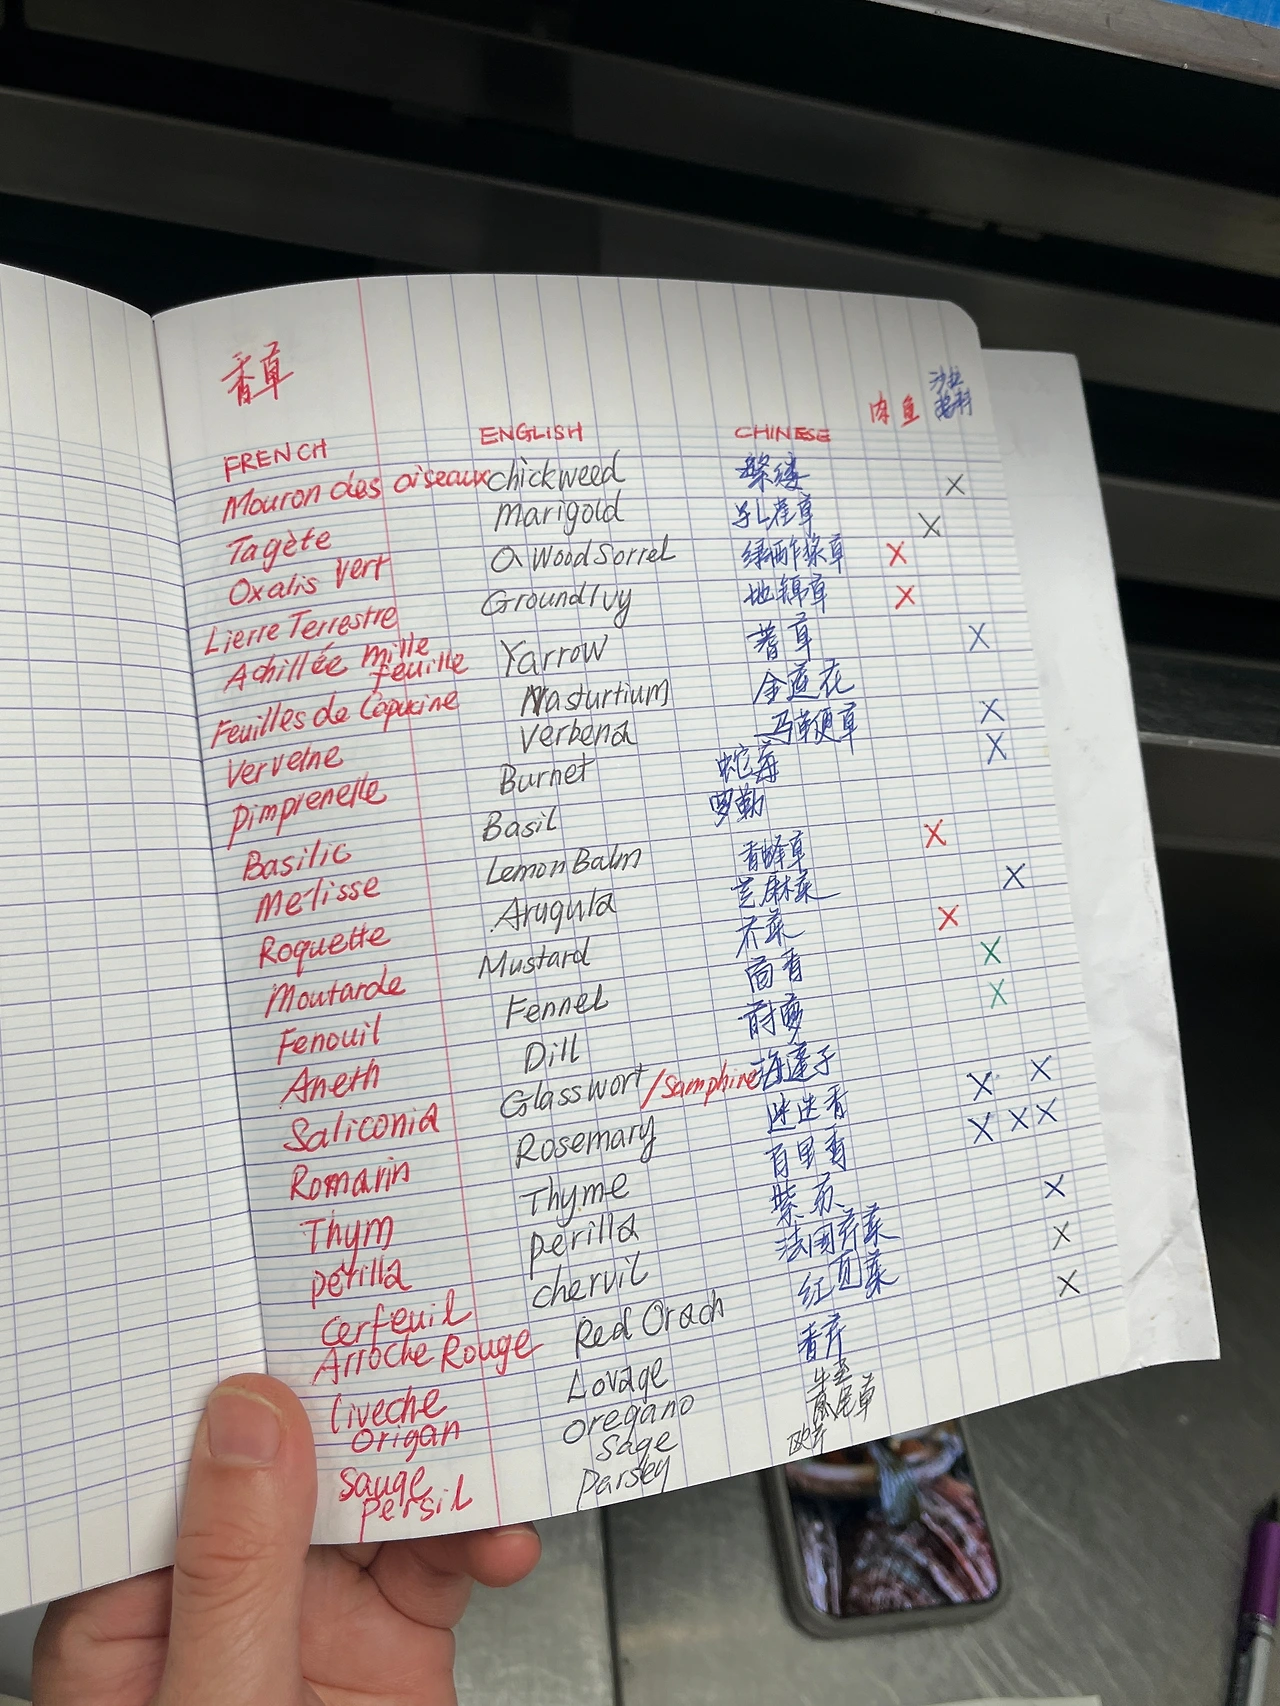 香草
FRENCH ENGLISH CHINESE 肉 鱼 沙拉
Mouron des oiseaux chickweed 繁缕 X
Tagète Marigold 孔雀草 X
Oxalis Vert Wood Sorrel 绿酢浆草 X
Lierre Terrestre Ground Ivy 地锦草 X
Achillée mille feuille Yarrow 蓍草 X
Feuilles de Capucine Nasturtium 金莲花
Verveine Verbena 马鞭草 X
Pimprenelle Burnet 蛇莓 X
Basilic Basil 罗勒
Mélisse Lemon Balm 香蜂草 X
Roquette Arugula 芝麻菜 X
Moutarde Mustard 芥菜 X
Fenouil Fennel 茴香 X
Aneth Dill 莳萝 X
Saliconia Glasswort/Samphire 海蓬子
Romarin Rosemary 迷迭香 X X
Thym Thyme 百里香 X X X
Périlla Perilla 紫苏
Cerfeuil Chervil 法国芹菜 X
Arroche Rouge Red Orach 红苋菜 X
Liveche Lovage 香芹 X
Origan oregano 牛至
Sauge Sage 鼠尾草
Persil Parsey 欧芹